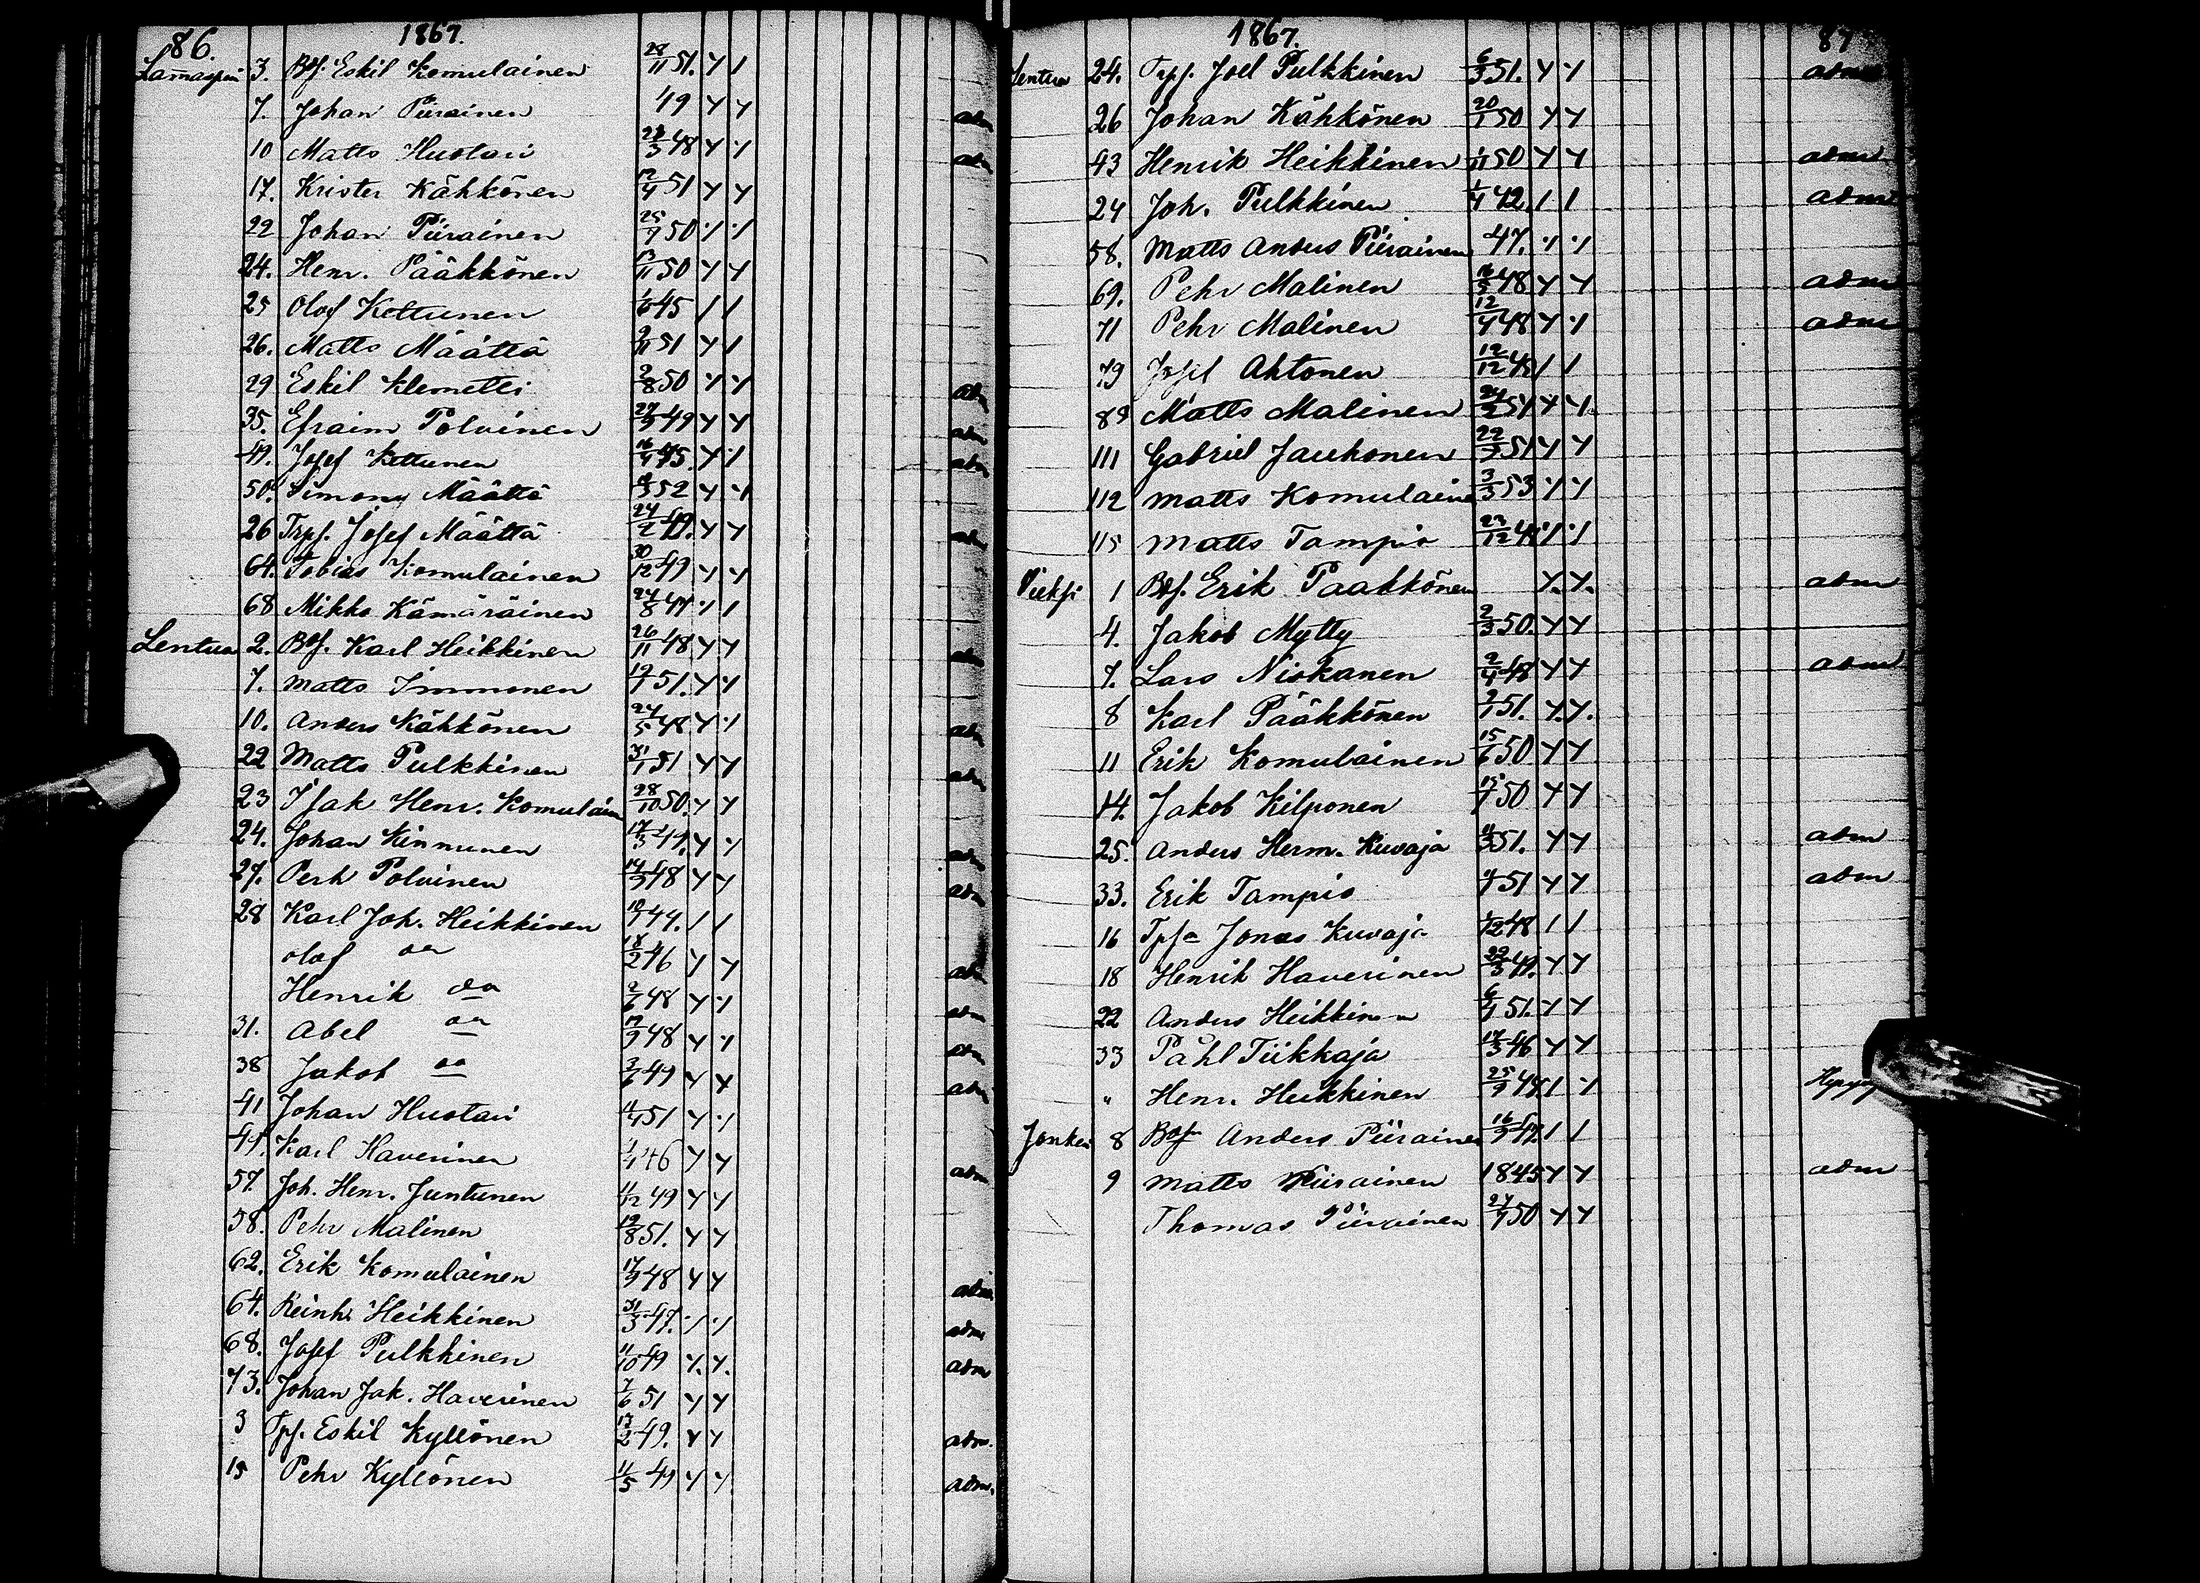 86. 1867.
Lamaspää 3. Bdf. Eskil Komulainen 28/11 51.
7. Johan Piirainen 49 adm
10 Matts Huotari 28/3 48 adm
17. Krister Kähkönen 12/4 51
22 Johan Piirainen 25/7 50
24. Henr. Pääkkönen 13/11 50
25 Olof Kettunen 1/6 45
26. Matts Määttä 9/11 51
29 Eskil Klemetti 2/8 50 adm
35. Efraim Polvinen 27/5 49 adm
49. Josef Kettunen 16/4 45. adm
50. Simon Määttä 52
26 Trpf. Josef Määttä 24/2 49. adm
64. Tobias Komulainen 30/12 49
68 Mikko Kämäräinen 24/8 47
Lentua 2. Bdf. Karl Heikkinen 26/11 48 adm
7. Matts Immonen 19/7 51.
10. Anders Kähkönen 24/5 48 adm
22 Matts Pulkkinen 31/1 51 adm
23 Isak Henr. Komulain 28/10 50.
24. Johan Kinnunen 17/3 49. adm
27. Perh Polvinen 14/3 48 adm
28 Karl Joh. Heikkinen 10/7 44.
Olof do 18/2 46 adm
Henrik do 2/6 48 adm
31. Abel do 17/9 48 adm
38 Jakob do 3/6 49 adm
41 Johan Huotari 51
Karl Haverinen 1/1 46 adm
57. Joh. Henr. Juntunen 11/12 49
58. Pehr Malinen 19/8 51.
62. Erik Komulainen 17/9 48 adm.
64. Reinh. Heikkinen 31/3 47. adm
68. Josef Pulkkinen 11/10 49 adm
73. Johan Jak. Haverinen 7/6 51
3 Tpf. Eskil Kyllönen 13/2 49. adm.
15 Pehr Kyllönen 11/5 49 adm.
1867. 87
Lentua 24. Trpf. Joel Pulkkinen 6/3 51. adm
26 Johan Kähkönen 20/1 50
43 Henrik Heikkinen 1/11 50 adm
24 Joh. Pulkkinen 1/4 42. adm
58. Matts Anders Piirainen 47.
69. Pehr Malinen 16/5 48 adm
71 Pehr Malinen 12/4 48 adm
79 Josef Ahtonen 19/12
89 Matts Malinen 24/2 51
111 Gabriel Jauhonen 22/3 51
112 Matts Komulaine 3/3 53
115 Matts Tampio 23/12 48
Vieksi 1 Bdf. Erik Paakkönen adm
4. Jakob Mytty 2/3 50.
7. Lars Niskanen 2/4 48 adm
8 Karl Pääkkönen 2/7 51.
11 Erik Komulainen 15/6 50
14. Jakob Kilponen 15/7 50
25. Anders Herm. Kuvaja 11/3 51. adm
33. Erik Tampio 51 adm
16 Tpf. Jonas Kuvaja 1/12 48
18 Henrik Haverinen 22/3 49.
22 Anders Heikkinen 6/4 51.
33 Påhl Tiikkaja 17/3 46
" Henr. Heikkinen 25/9 48
Jonkeri 8 Bdf Anders Piiraine 16/9 47.
9 Matts Piirainen 1845 adm
Thomas Piirainen 27/9 50